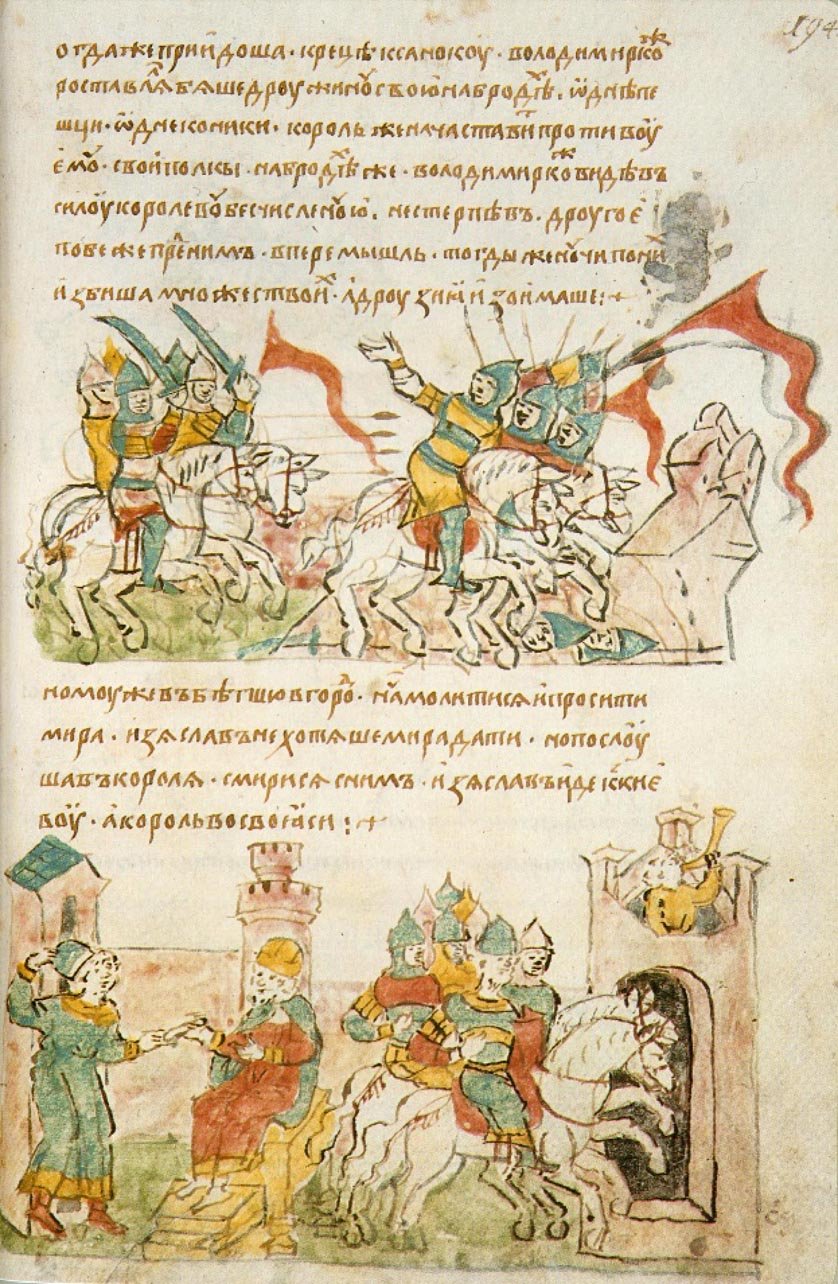 194
огдажепрїидоша · крецѣ ксанокоу · володимиркоⷤ
роставлѧⷧ бѧшедроужинꙋсвоюнабродⷯѣ . ѿднѣпе
шци · ѿднеконики · корольженачаставⷮи противоу
емꙋ · свои полкы · набродⷯѣ же · володимиркоⷤ видѣвъ
силоу королевꙋ бесчисленꙋю . нестерпѣвъ . дроугое
побежепреⷣнимъ · вперемышль · тогдыженꙋчи пониⷯ
и҆збиша множествоиⷯ · а҆дроузїи и҆зоимаше :~
номоужевъбѣгшювгороⷣ · начаⷧ молитисѧ и҆просити
мира · и҆зѧславънехотѧшемирадати · нопослоу
шавъ королѧ · смирисѧ снимъ · и҆зѧславъ и҆де ккиѥ
воу · а корольвосвоѧси :~